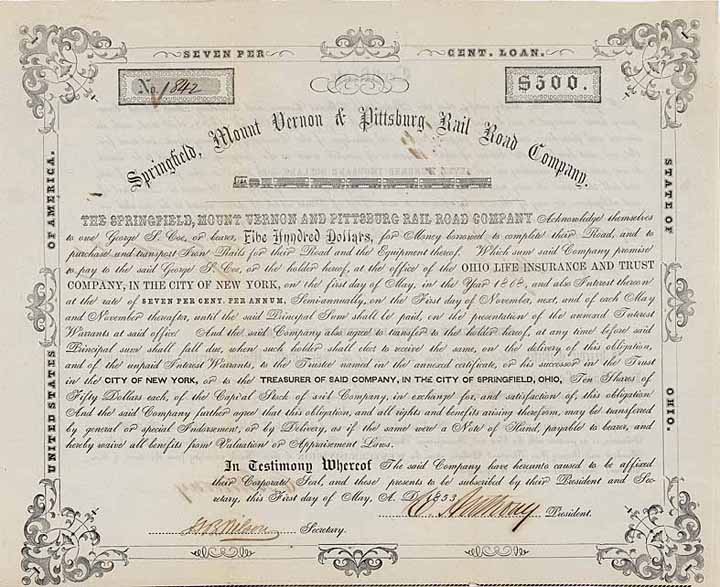 SEVEN PER CENT. LOAN.
No. 1842
$500.
Springfield, Mount Vernon & Pittsburg Rail Road Company.
THE SPRINGFIELD, MOUNT VERNON AND PITTSBURG RAIL ROAD COMPANY Acknowledge themselves
to owe George S. Coe, or bearer, Five Hundred Dollars, for Money borrowed to complete their Road, and to
purchase and transport Iron Rails for their Road and the Equipment thereof. Which sum said Company promise
to pay to the said George S. Coe, or the holder hereof, at the office of the OHIO LIFE INSURANCE AND TRUST
COMPANY, IN THE CITY OF NEW YORK, on the first day of May, in the Year 1868, and also Interest thereon
at the rate of SEVEN PER CENT. PER ANNUM, Semi-annually, on the First day of November, next, and of each May
and November thereafter, until the said Principal Sum shall be paid, on the presentation of the annexed Interest
Warrants at said office. And the said Company also agree to transfer to the holder hereof, at any time before said
Principal sum shall fall due, when such holder shall elect to receive the same, on the delivery of this obligation,
and of the unpaid Interest Warrants, to the Trustee named in the annexed certificate, or his successor in the Trust
in the CITY OF NEW YORK, or to the TREASURER OF SAID COMPANY, IN THE CITY OF SPRINGFIELD, OHIO, Ten Shares of
Fifty Dollars each, of the Capital Stock of said Company, in exchange for, and satisfaction of this obligation.
And the said Company further agree that this obligation, and all rights and benefits arising therefrom, may be transferred
by general or special Indorsement, or by Delivery, as if the same were a Note of Hand, payable to bearer, and
hereby waive all benefits from Valuation or Appraisement Laws.
In Testimony Whereof The said Company have hereunto caused to be affixed
their Corporate Seal, and these presents to be subscribed by their President and Sec-
retary, this First day of May, A. D. 1853
President.
Secretary.
UNITED STATES OF AMERICA.
STATE OF OHIO.